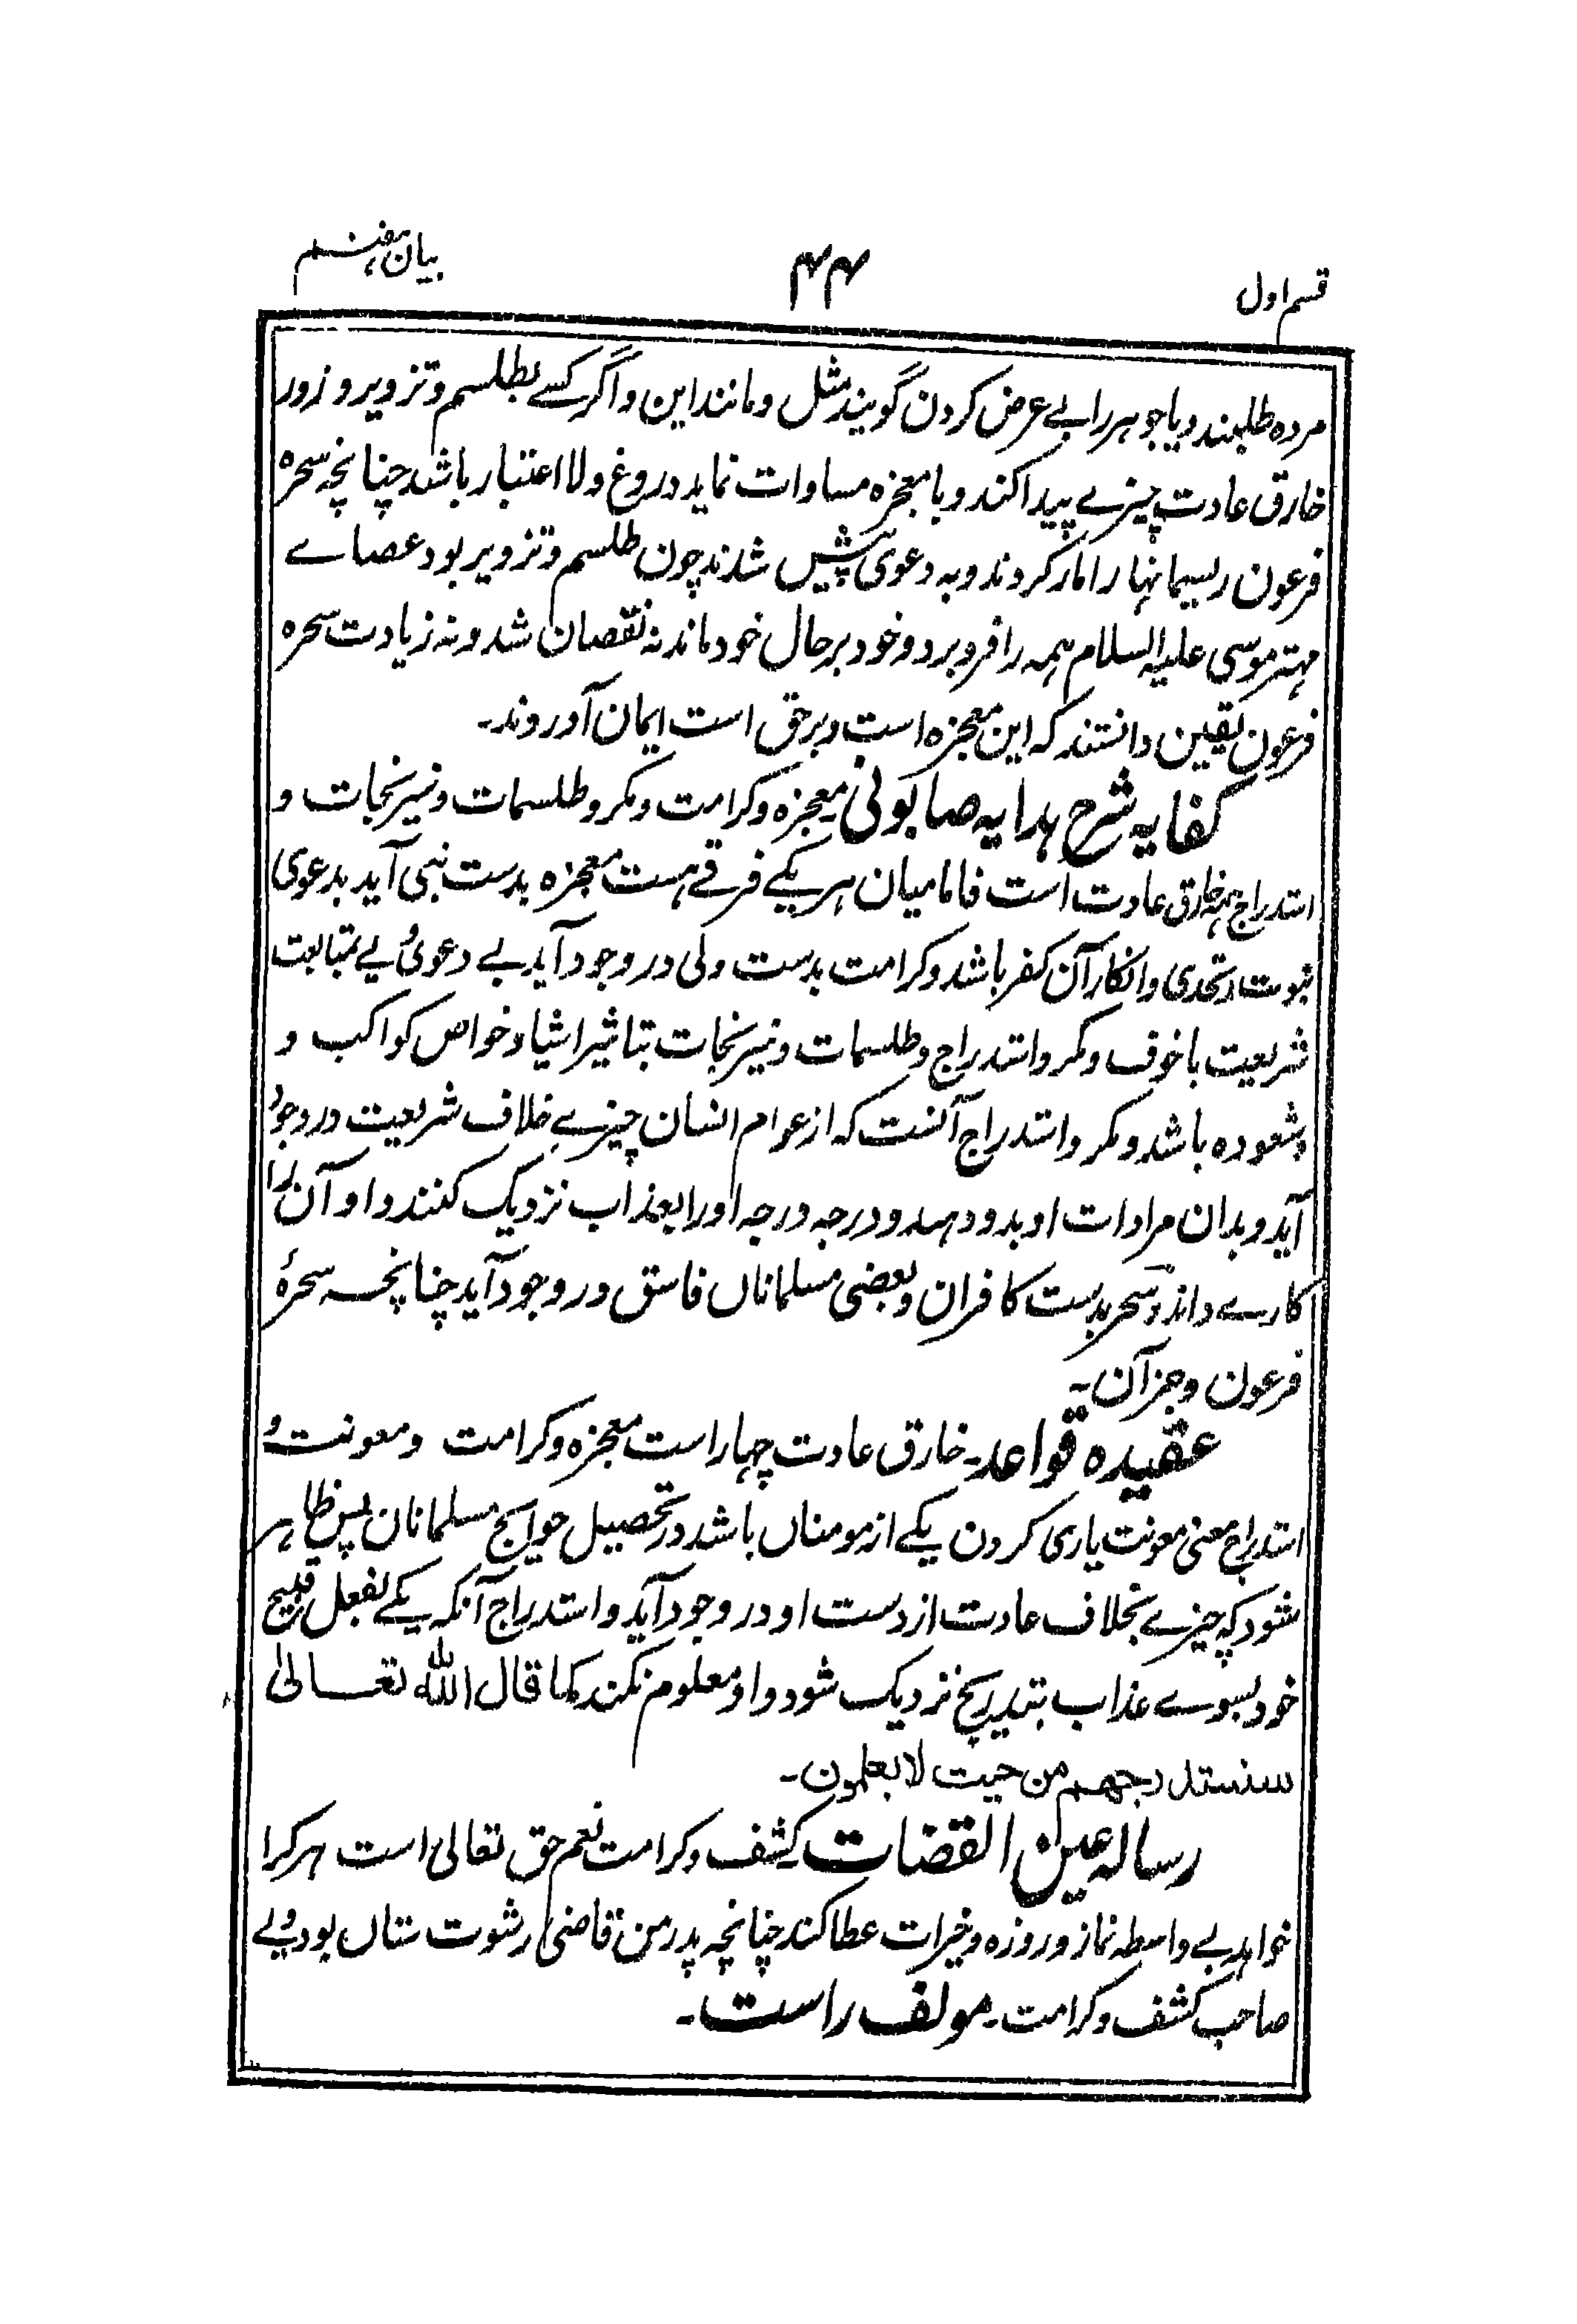 قسم اول
۴۴
بیان هفتم
مرده طلبند و یا جوهر را بے عرض کردن گویند مثل و مانند این و اگر کسے بطلسم و تزویر و زور
خارق عادت چیزے پیدا کند و با معجزه مساوات نماید دروغ و لا اعتبار باشد چنانچه سحرهٔ
فرعون ریسمانها را مار کردند و به دعوی پیش شدند چون طلسم و تزویر بود عصاے
مهتر موسی علیه السلام همه را فرو برد و خود بر حال خود ماند نه نقصان شد و نه زیادت سحره
فرعون یقین دانستند که این معجزه است و بر حق است ایمان آوردند۔
کفایه شرح هدایه صابونی۔ معجزه و کرامت و مکر و طلسمات و نیرنجات و
استدراج همه خارق عادت است فاما میان هر یکے فرقے هست معجزه بدست نبی آید بدعوی
نبوت و تحدی و انکار آن کفر باشد و کرامت بدست ولی در وجود آید بے دعویٰ بے متابعت
شریعت با خوف و مکر و استدراج و طلسمات و نیرنجات بتاثیر اشیا و خواص کواکب و
و شعوده باشد و مکر و استدراج آنست که از عوام انسان چیزے خلاف شریعت در وجود
آید و بدان مرادات او بدو دهند و درجه درجه او را بعذاب نزدیک کنند و او آن را
کارے داند و سحر بدست کافران و بعضی مسلماناں فاسق در وجود آید چنانچه سحرهٔ
فرعون و جز آن۔
عقیده قواعد۔ خارق عادت چهار است معجزه و کرامت و معونت و
استدراج معنی معونت یاری کردن یکے از مومناں باشد در تحصیل حوایج مسلمانان پس ظاهر
شود که چیزے بخلاف عادت از دست او در وجود آید و استدراج آنکه یکے بفعل قبیح
خود بسوے عذاب بتدریج نزدیک شود و او معلوم نکند کما قال الله تعالیٰ
سنستدرجهم من حیث لا یعلمون۔
رساله عین القضات۔ کشف و کرامت نعم حق تعالیٰ است هر کرا
خواهد بے واسطه نماز و روزه و خیرات عطا کند چنانچه پدر من قاضی رشوت ستاں بود و بے
صاحب کشف و کرامت۔ مولف راست۔